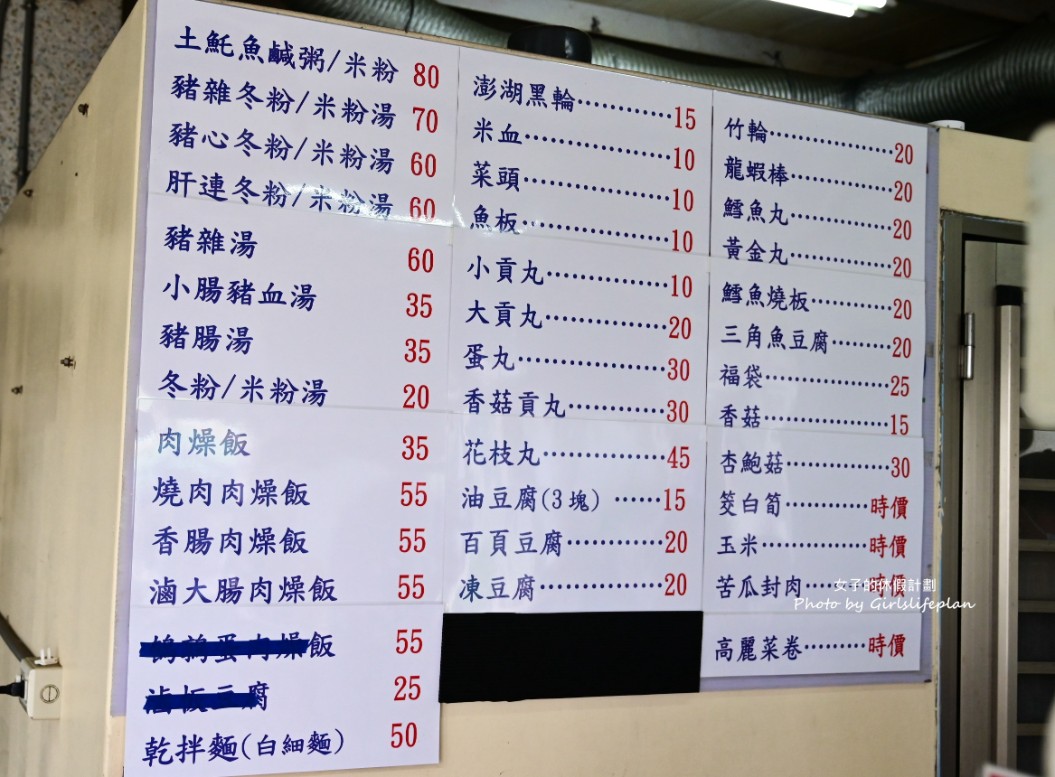 土魠魚鹹粥/米粉 80
豬雜冬粉/米粉湯 70
豬心冬粉/米粉湯 60
肝連冬粉/米粉湯 60
豬雜湯 60
小腸豬血湯 35
豬腸湯 35
冬粉/米粉湯 20
肉燥飯 35
燒肉肉燥飯 55
香腸肉燥飯 55
滷大腸肉燥飯 55
鵪鶉蛋肉燥飯 55
滷板豆腐 25
乾拌麵(白細麵) 50
澎湖黑輪 15
米血 10
菜頭 10
魚板 10
小貢丸 10
大貢丸 20
蛋丸 30
香菇貢丸 30
花枝丸 45
油豆腐(3塊) 15
百頁豆腐 20
凍豆腐 20
竹輪 20
龍蝦棒 20
鱈魚丸 20
黃金丸 20
鱈魚燒板 20
三角魚豆腐 20
福袋 25
香菇 15
杏鮑菇 30
筊白筍 時價
玉米 時價
苦瓜封肉 時價
高麗菜卷 時價
女子的休假計劃
Photo by Girlslifeplan